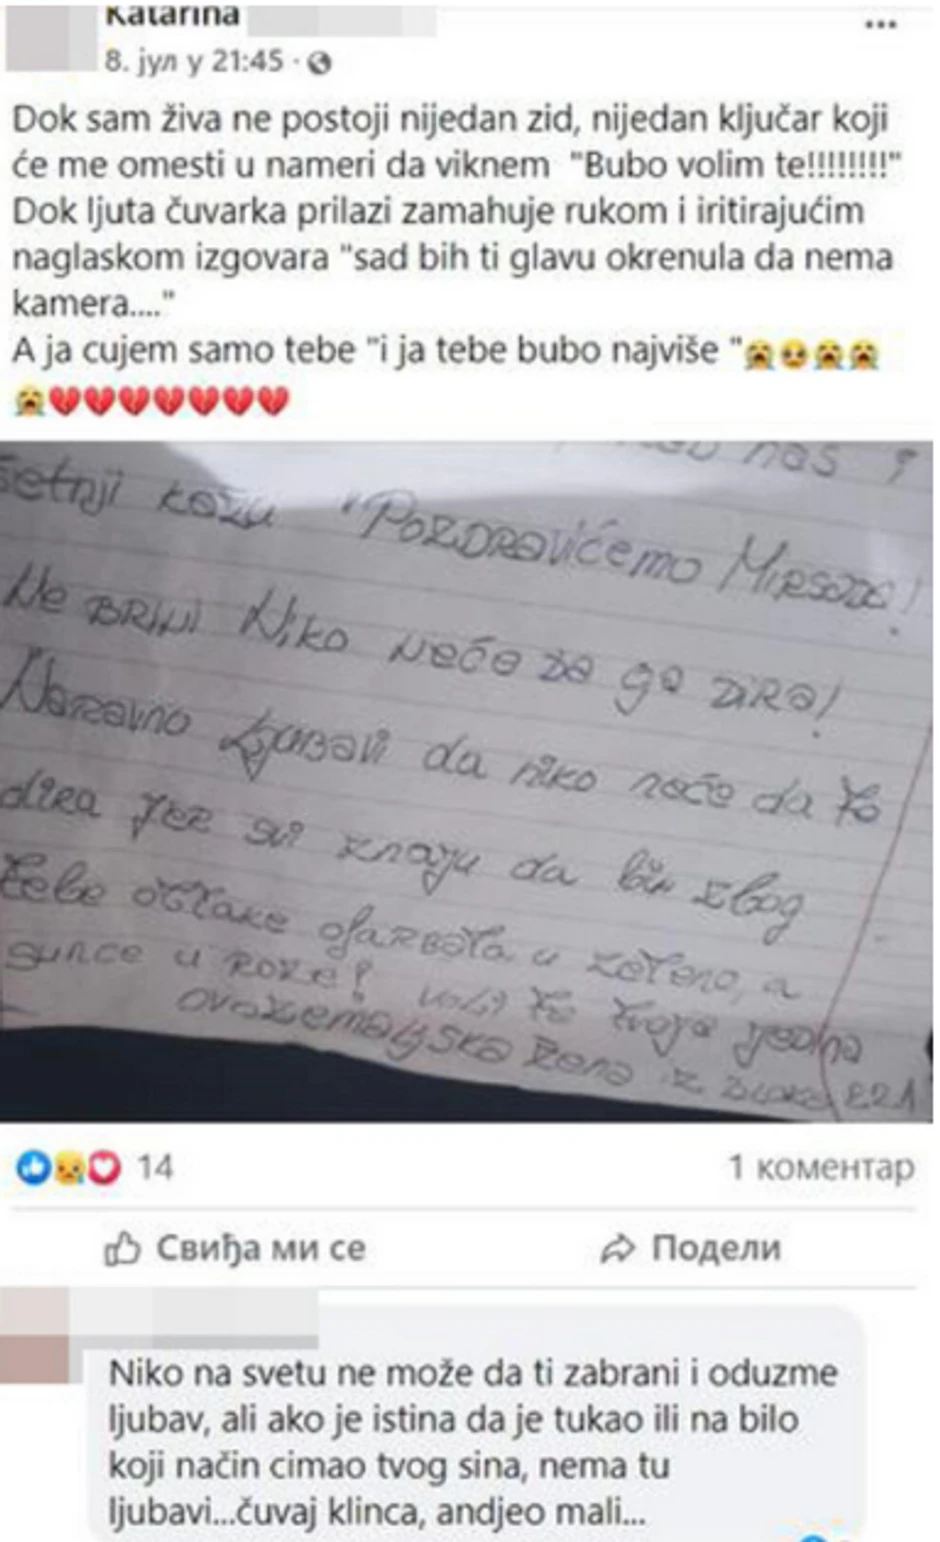 Katarina
8. јул у 21:45
Dok sam živa ne postoji nijedan zid, nijedan ključar koji
će me omesti u nameri da viknem "Bubo volim te!!!!!!!!"
Dok ljuta čuvarka prilazi zamahuje rukom i iritirajućim
naglaskom izgovara "sad bih ti glavu okrenula da nema
kamera...."
A ja cujem samo tebe "i ja tebe bubo najviše "😭🥺😭😭
😭💔💔💔💔💔💔💔
nas
šetnji kažu "Pozdravićemo Mirsada!
Ne brini Niko neće da ga dira!
Naravno Ljubavi da niko neće da te
dira jer svi znaju da bih zbog
tebe oblake ofarbala u zeleno, a
sunce u roze! Voli te tvoja jedina
ovozemaljska žena iz bloka
14
1 коментар
Свиђа ми се
Подели
Niko na svetu ne može da ti zabrani i oduzme
ljubav, ali ako je istina da je tukao ili na bilo
koji način cimao tvog sina, nema tu
ljubavi...čuvaj klinca, andjeo mali...